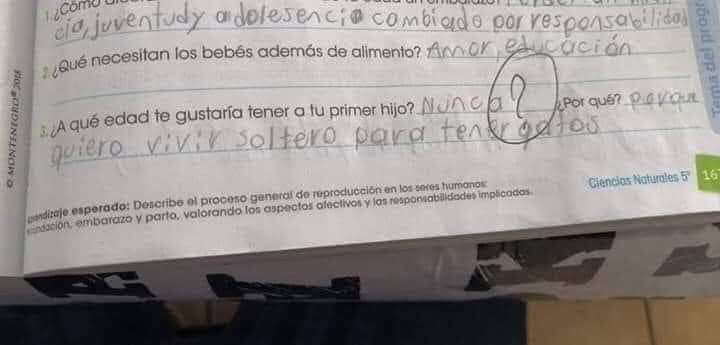 1. ¿Cómo
cia, juventud y adolesencia combiado por responsabilidad
2. ¿Qué necesitan los bebés además de alimento? Amor, educación
3. ¿A qué edad te gustaría tener a tu primer hijo? Nunca ? ¿Por qué? porque
quiero vivir soltero para tener gatos
esperado: Describe el proceso general de reproducción en los seres humanos:
embarazo y parto, valorando los aspectos afectivos y las responsabilidades implicadas.
Ciencias Naturales 5°
16
© MONTENEGRO® 2018